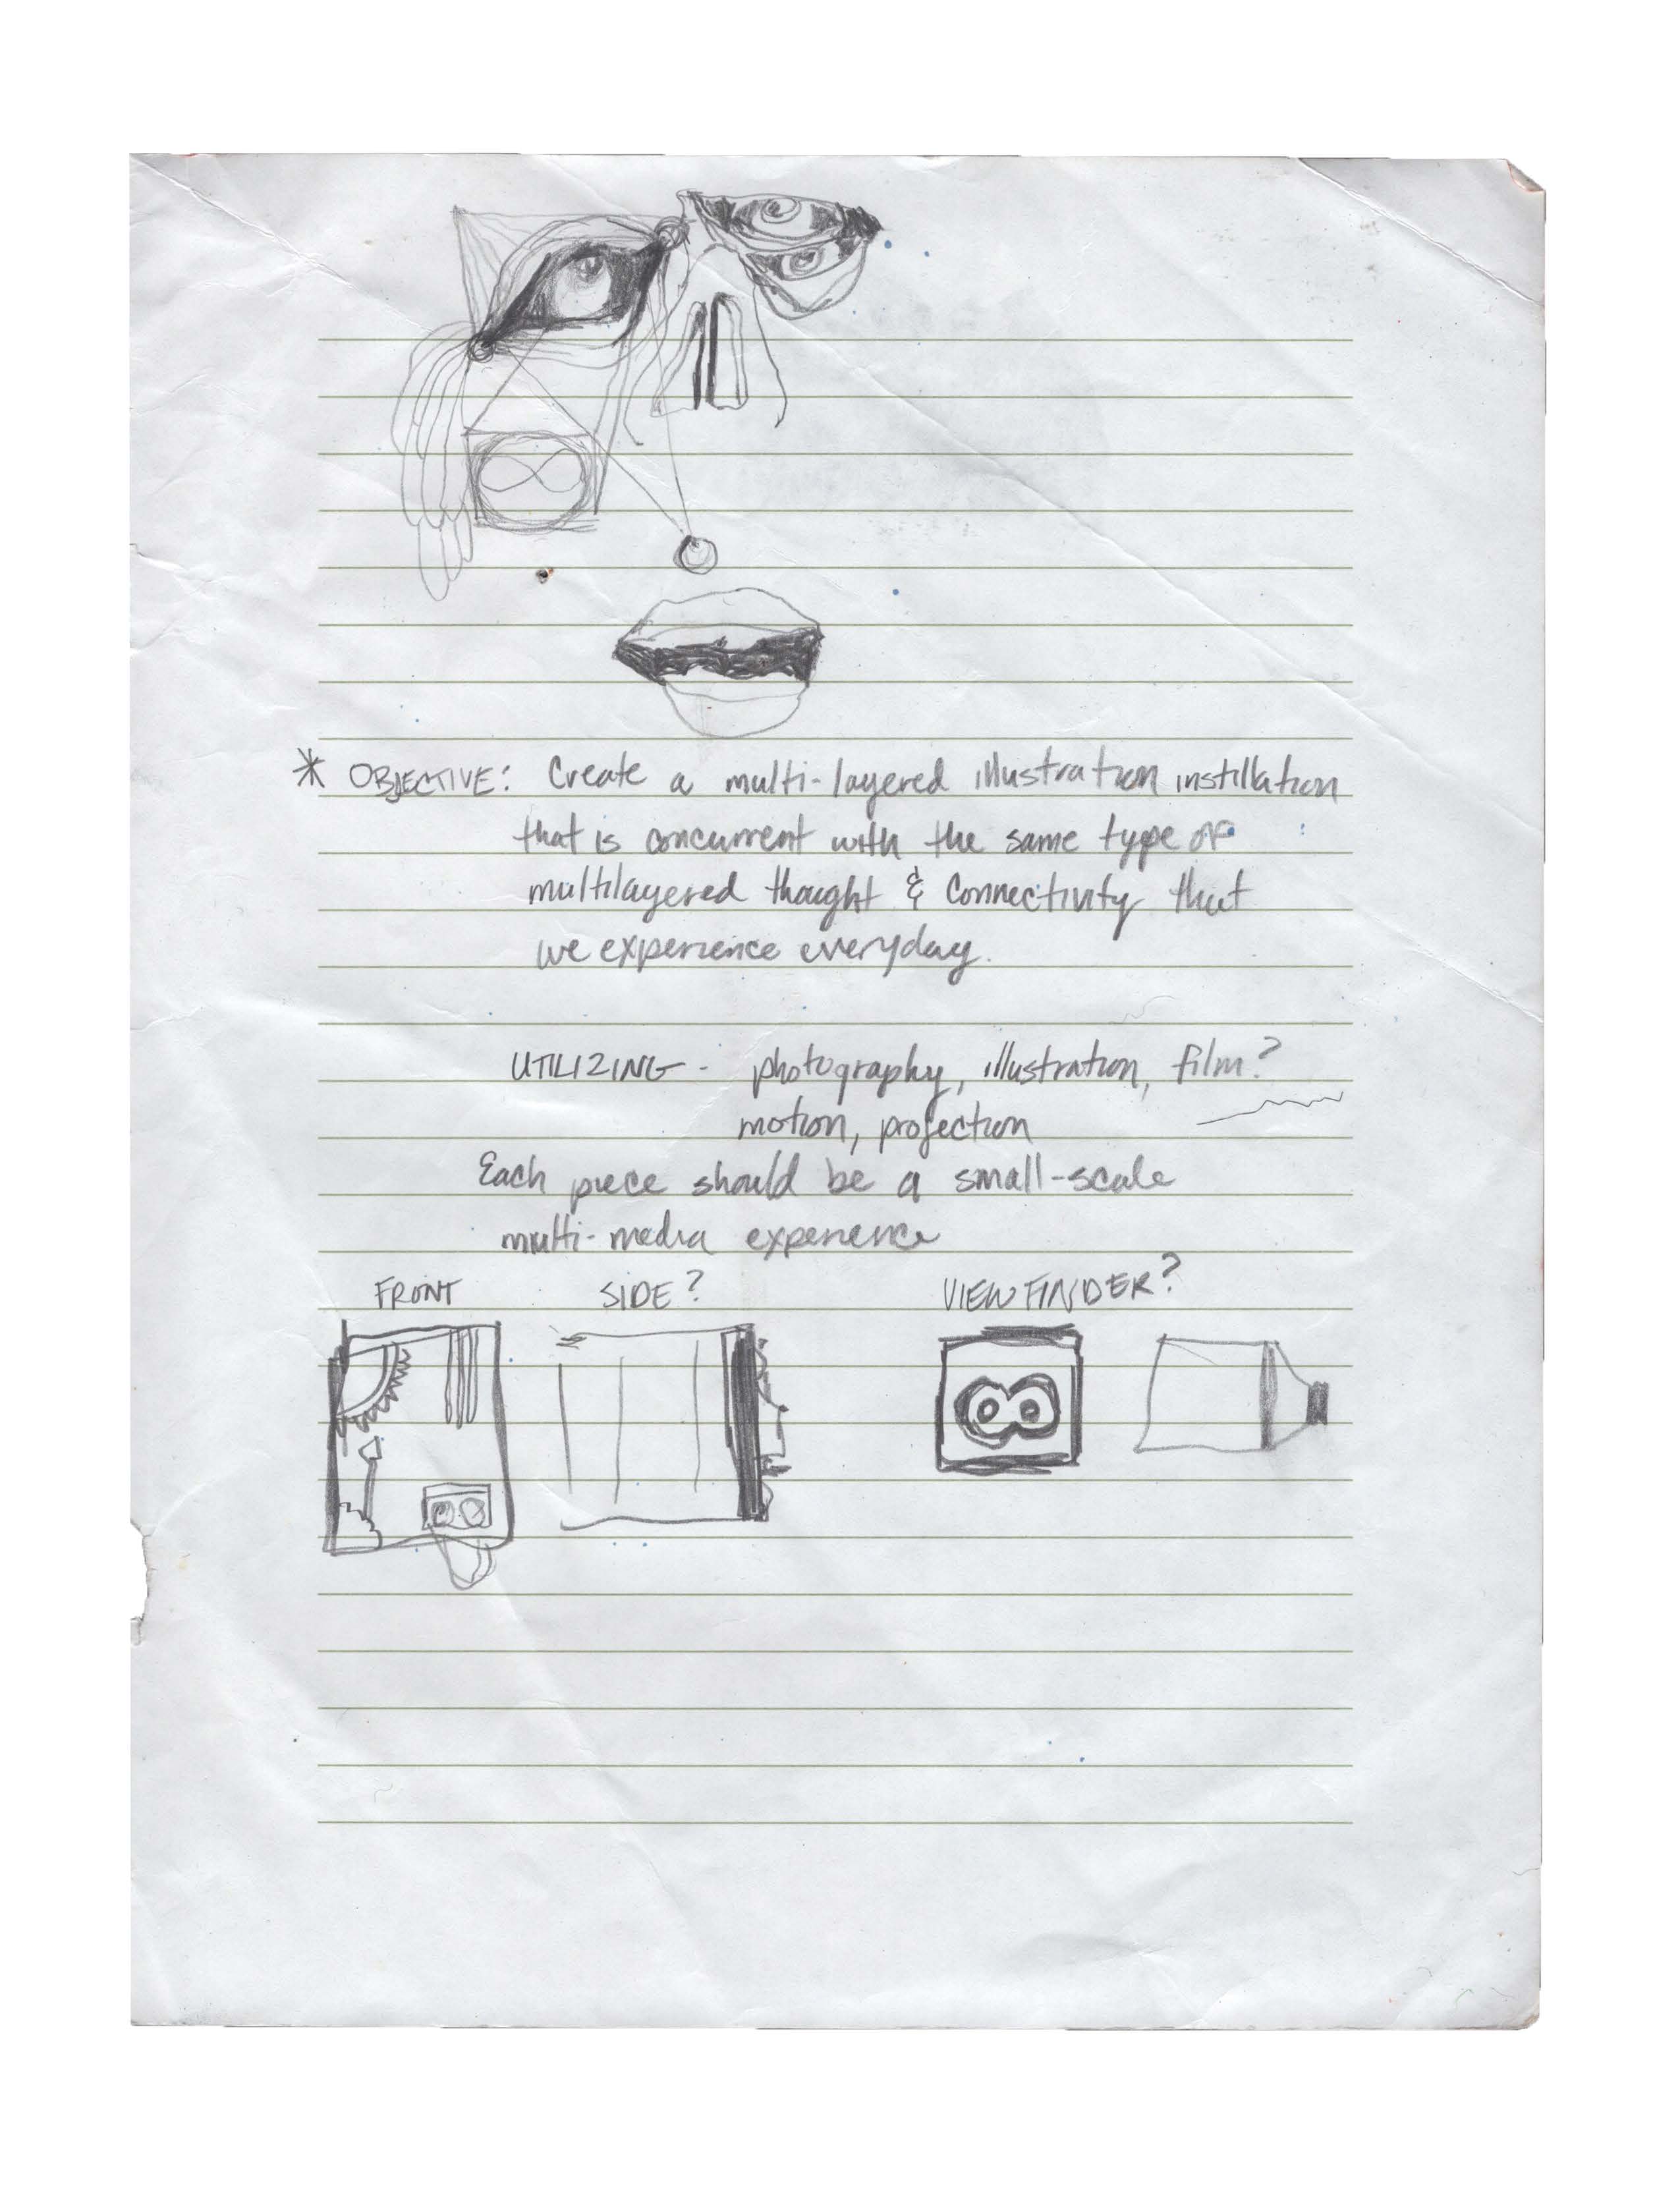 * OBJECTIVE: Create a multi-layered illustration instillation
that is concurrent with the same type of
multilayered thought & connectivity that
we experience everyday.
UTILIZING - photography, illustration, film?
motion, projection
Each piece should be a small-scale
multi-media experience
FRONT SIDE? VIEWFINDER?